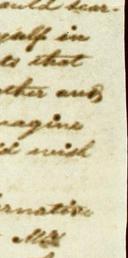 ould scar-
yself in
ts that
other and
magine
d wish
ernative